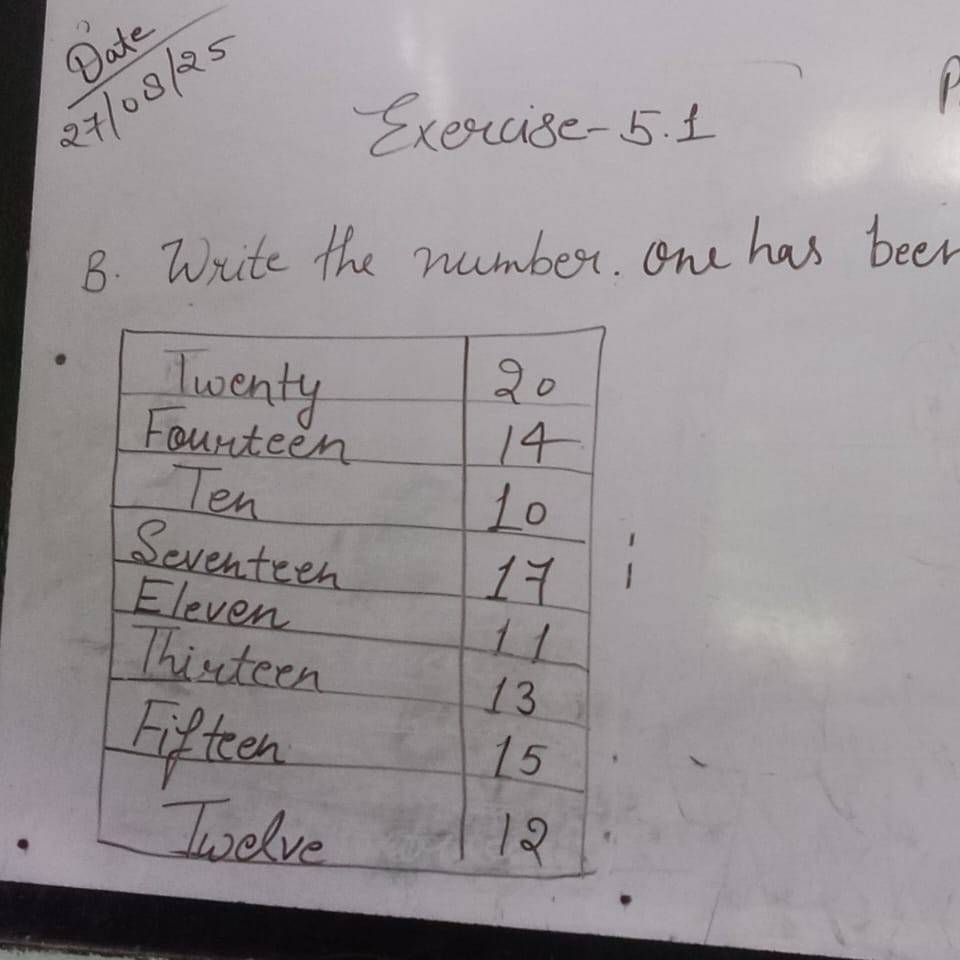 Date
27/08/25
Exercise-5.1
B. Write the number. one has been
Twenty 20
Fourteen 14
Ten 10
Seventeen 17
Eleven 11
Thirteen 13
Fifteen 15
Twelve 12